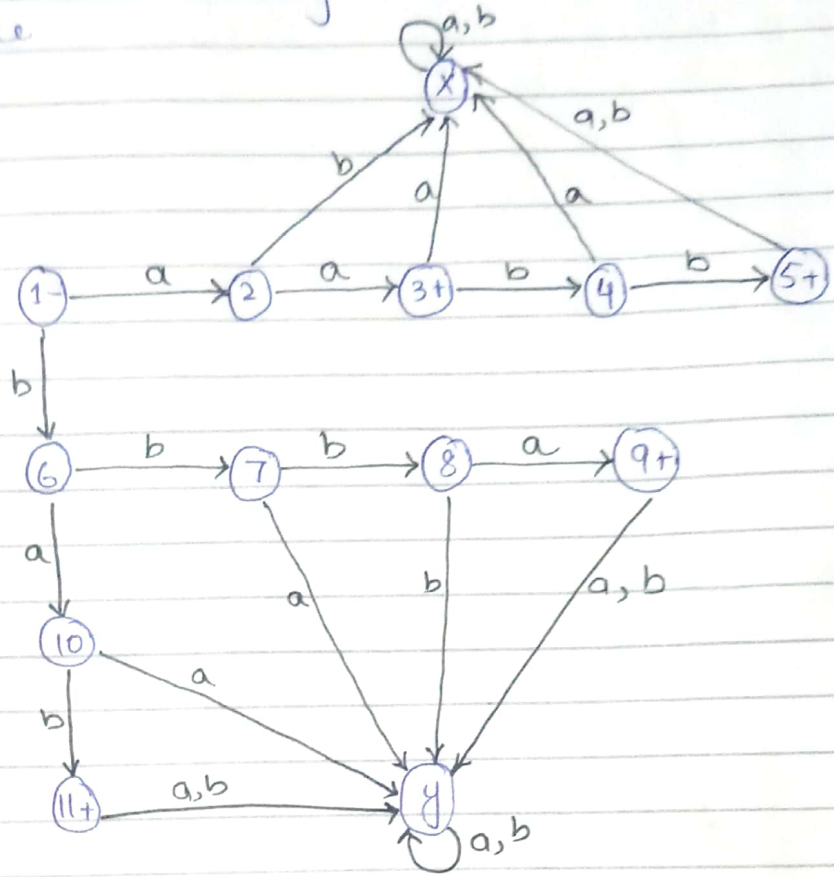 a, b
x
a, b
b
a
a
1- a 2 a 3+ b 4 b 5+
b
6 b 7 b 8 a 9+
a
a
b
a, b
10
a
b
11+ a,b y
a, b